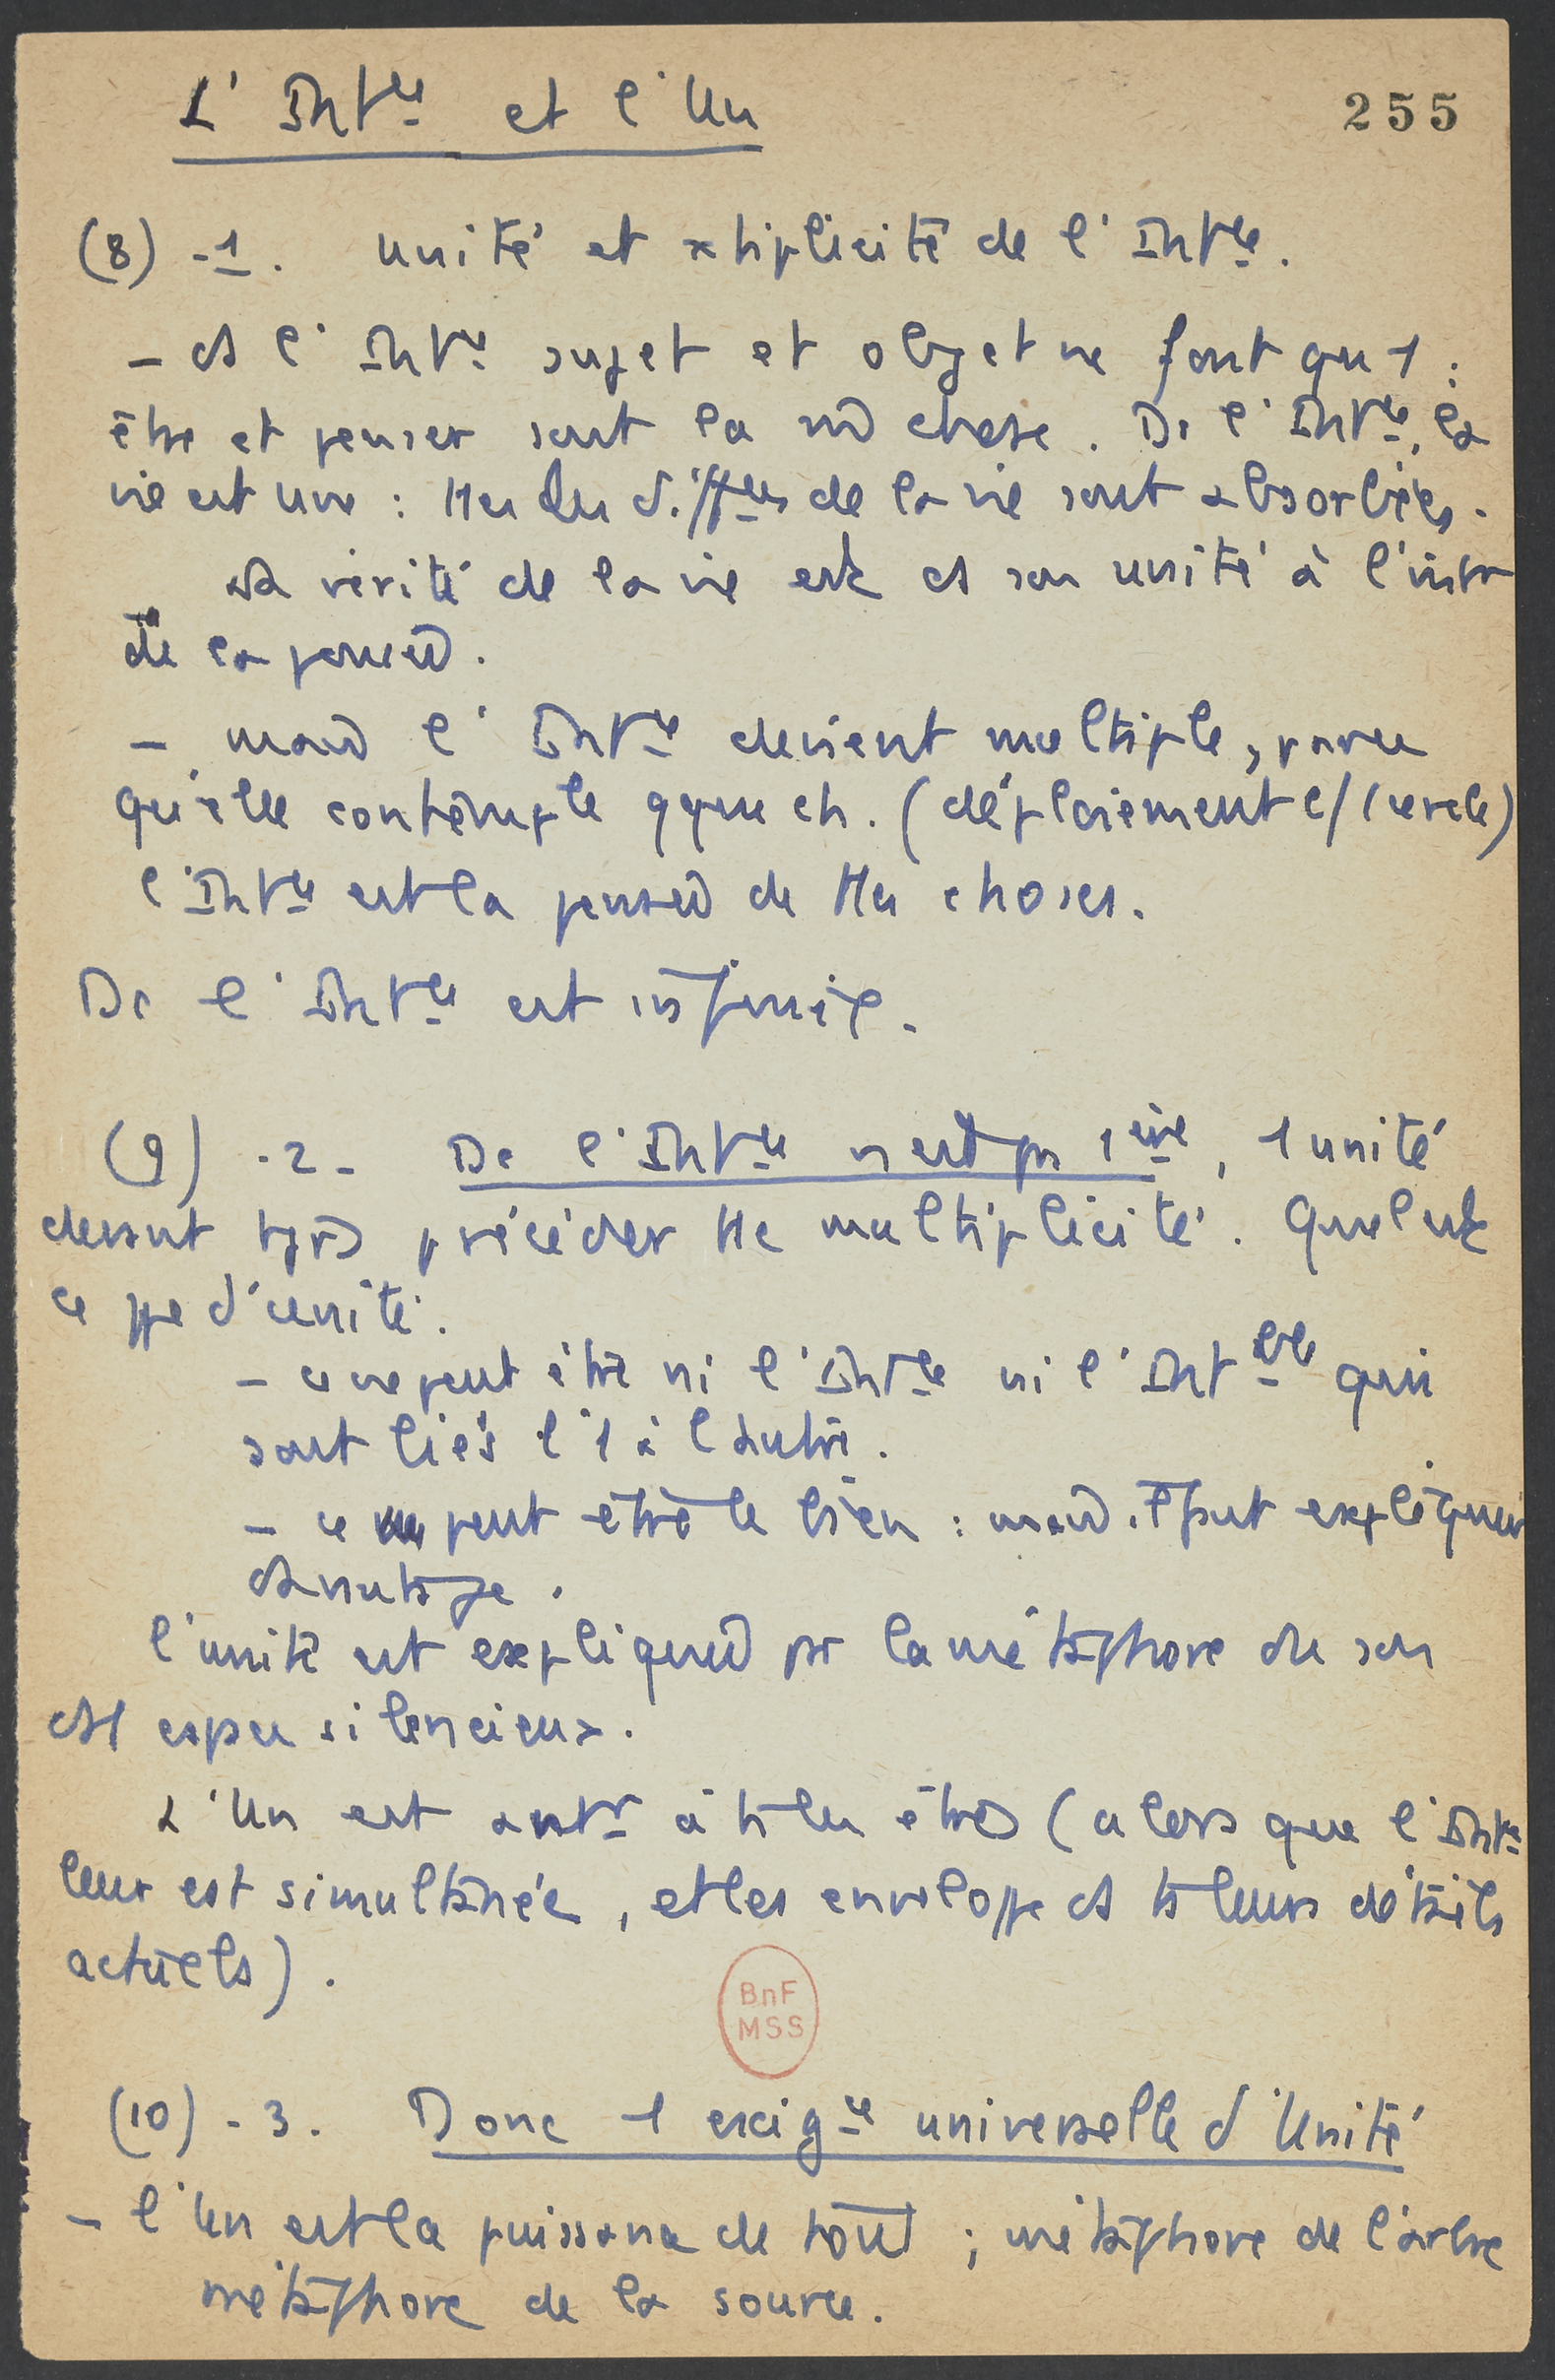 L' Int^ce et l'Un
255
(8) - 1. Unité et xtiplicité de l'Int^ce.
- ds l'Int^ce sujet et objet ne font qu'1 :
être et penser sont la m̂ chose. Dc l'Int^ce, la
vie est une : ttes les diff^ces de la vie sont absorbées.
La vérité de la vie est ds son unité à l'intr
de la pensée.
- mais l'Int^ce devient multiple, parce
qu'elle contemple qque ch. (déploiement c/ cercle)
l'Int^ce est la pensée de ttes choses.
Dc l'Int^ce est infinie.
(9) - 2 - Dc l'Int^ce n'est pas 1ère, 1 unité
devant tjrs précéder tte multiplicité. Quel est
ce type d'unité.
- ce ne peut être ni l'Int^ce ni l'Int^ble qui
sont liés l'1 à l'autre.
- ce peut être le bien : mais il faut expliquer
davantage.
l'unité est expliquée par la métaphore du son
ds l'espace silencieux.
L'Un est antr à ts les êtres (alors que l'Int^ce
leur est simultanée, et les enveloppe ds ts leurs détails
actuels).
BnF
MSS
(10) - 3. Donc 1 exig^ce universelle d'Unité
- l'Un est la puissance de tout ; métaphore de l'arbre
métaphore de la source.